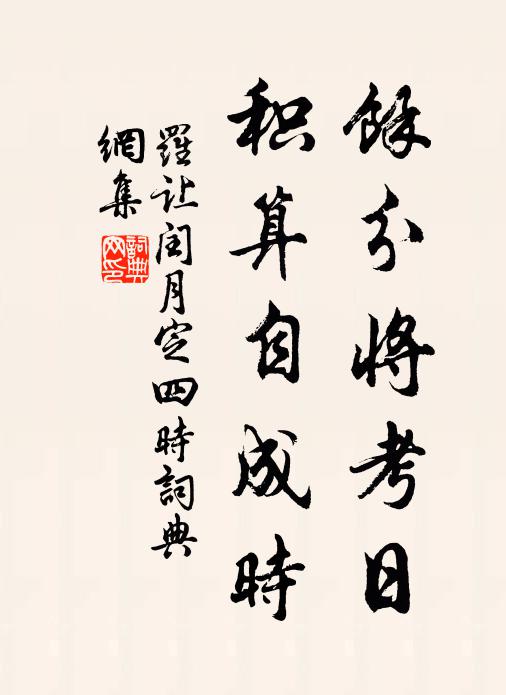 餘分将考日
积算自成時
羅让闰月定四時詞典
網集
詞典
网印